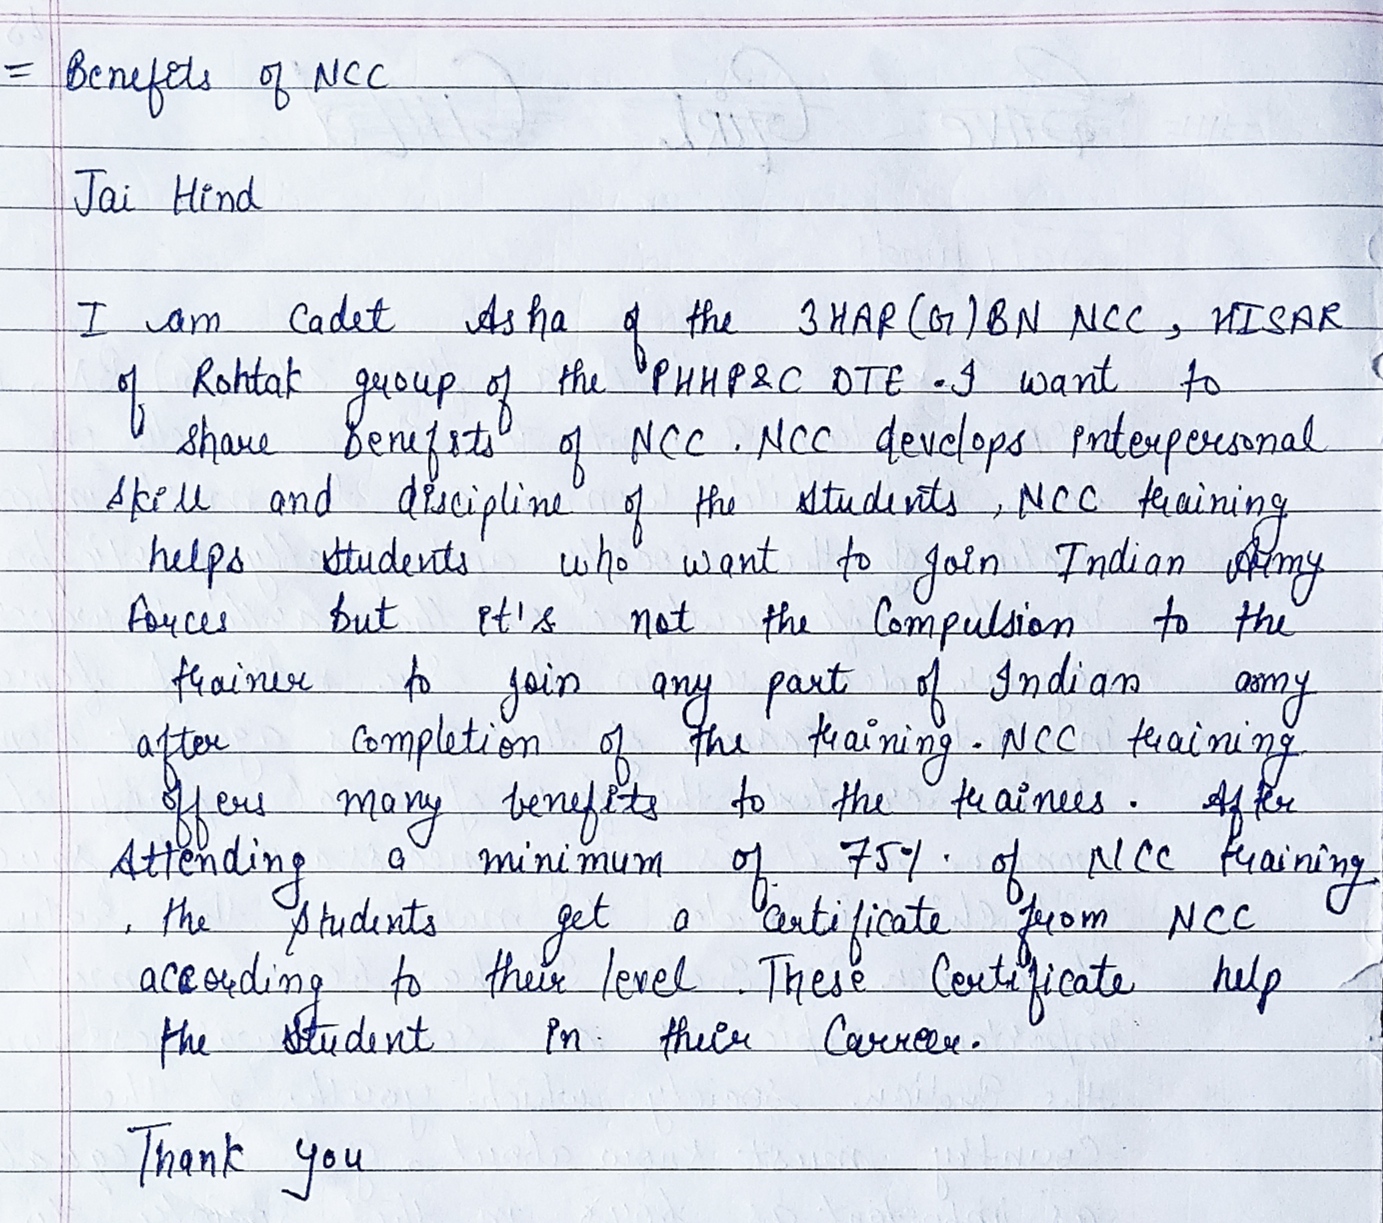 = Benefits of NCC
Jai Hind
I am Cadet Asha of the 3HAR(G)BN NCC, HISAR
of Rohtak group of the PHHP&C DTE. I want to
share benefits of NCC. NCC develops interpersonal
skill and discipline of the students, NCC training
helps students who want to join Indian Army
forces but it's not the Compulsion to the
trainer to join any part of Indian army
after completion of the training. NCC training
offers many benefits to the trainees. After
Attending a minimum of 75% of NCC training
, the students get a certificate from NCC
according to their level. These Certificate help
the student in their Carreer.
Thank you